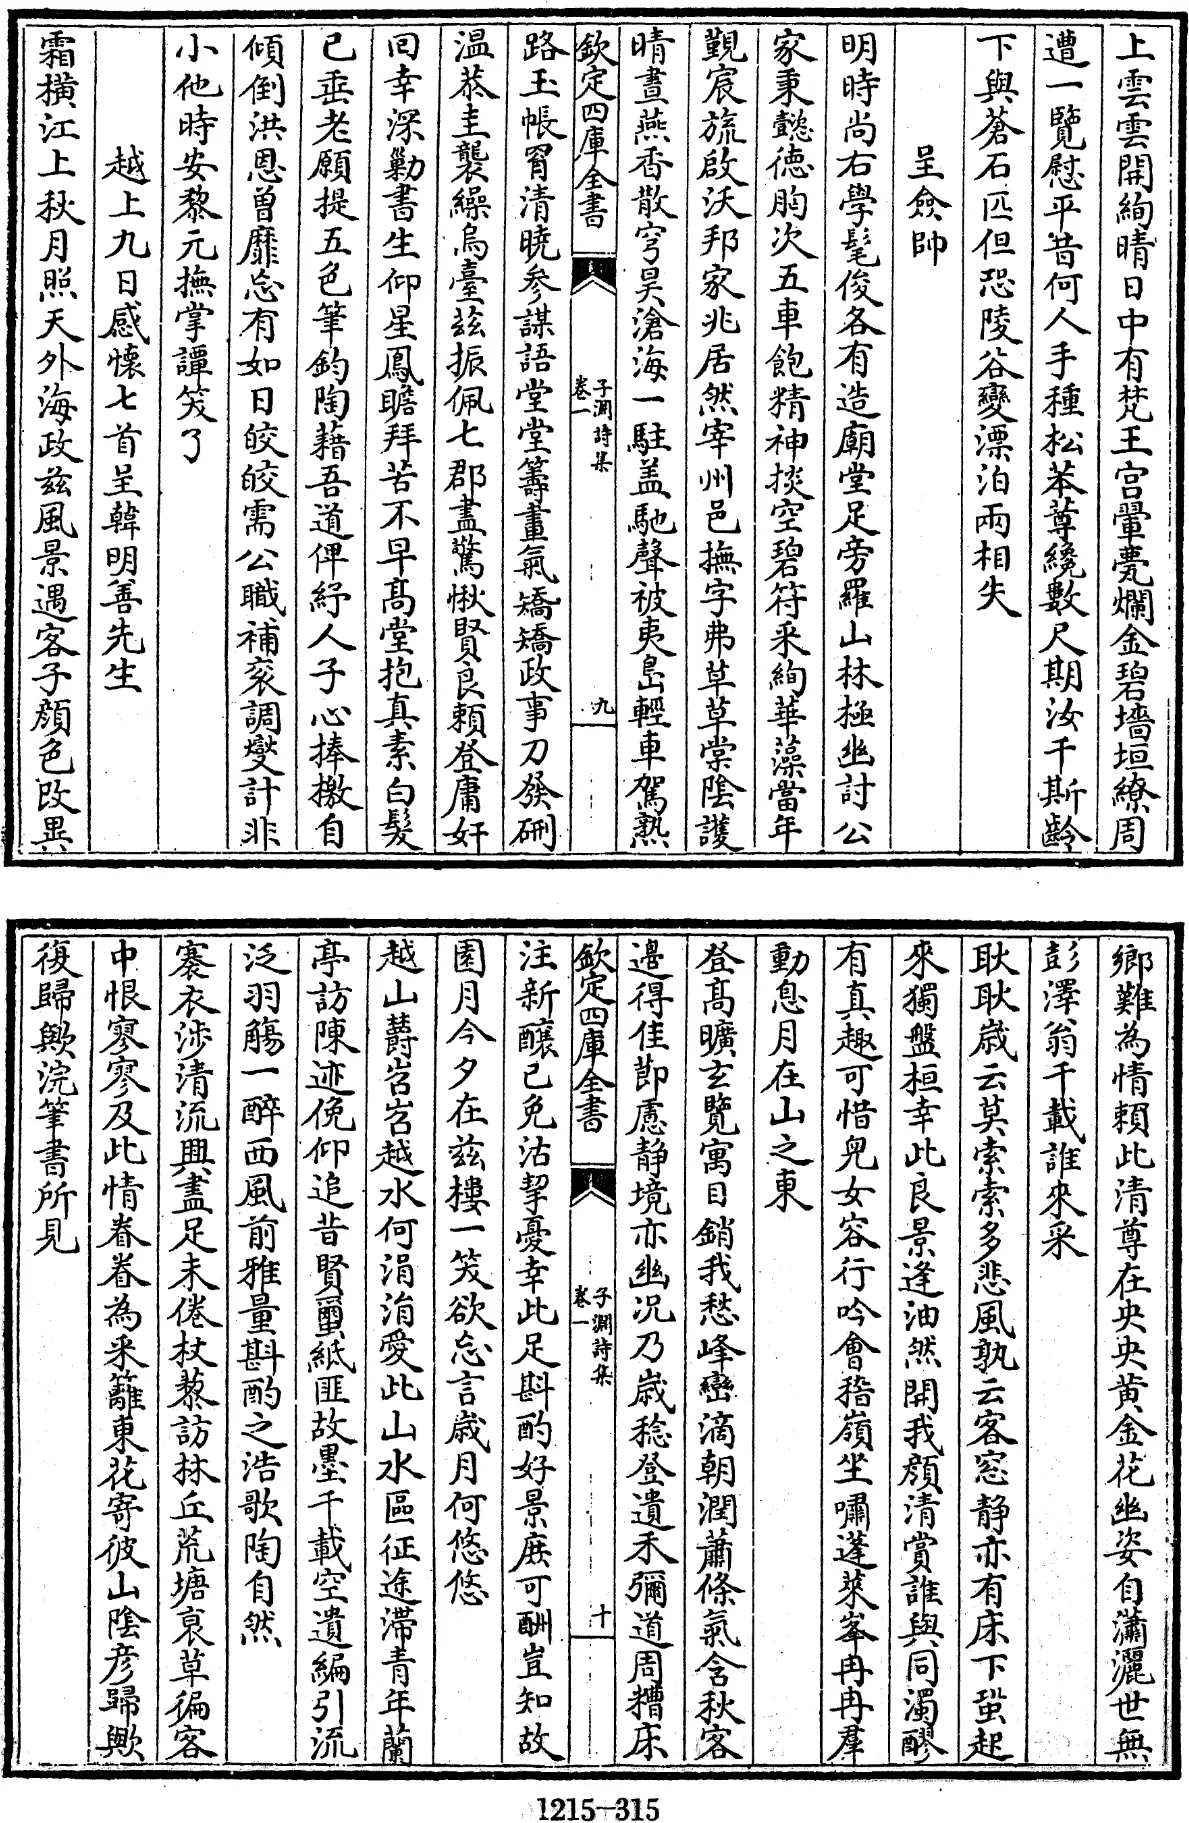 上雲雲開絢晴日中有梵王宫翬甍爛金碧墻垣繚周
遭一覽慰平昔何人手種松苯䔿纔數尺期汝千斯齡
下與蒼石匹但恐陵谷變漂泊兩相失
呈僉帥
明時尚右學髦俊各有造廟堂足旁羅山林極幽討公
家秉懿徳胸次五車飽精神掞空碧符采絢華藻當年
覲宸旒啟沃邦家兆居然宰州邑撫字弗草草棠隂護
晴晝燕香散穹昊滄海一駐盖馳聲被夷島輕車駕熟
欽定四庫全書
子淵詩集
卷一
九
路玉帳肾清曉參謀語堂堂籌畫氣矯矯政事刀發硎
温恭圭襲繅烏臺兹振佩七郡盡驚愀賢良頼登庸奸
回幸深勦書生仰星鳳瞻拜苦不早髙堂抱真素白髮
已垂老願提五色筆鈞陶藉吾道俾紓人子心捧檄自
傾倒洪恩曽靡忘有如日皎皎需公職補衮調燮計非
小他時安黎元撫掌譚笑了
越上九日感懷七首呈韓明善先生
霜横江上秋月照天外海政兹風景遇客子顔色改異
鄉難為情頼此清尊在央央黄金花幽姿自瀟灑世無
彭澤翁千載誰來采
耿耿歳云莫索索多悲風孰云客窓静亦有床下蛩起
來獨盤桓幸此良景逢油然開我顔清賞誰與同濁醪
有真趣可惜兒女容行吟會稽嶺坐嘯蓬萊峯冉冉羣
動息月在山之東
登髙曠玄覽寓目銷我愁峰巒滴朝潤蕭條氣含秋客
邉得佳節慮静境亦幽况乃歳稔登遺禾彌道周糟床
欽定四庫全書
子淵詩集
卷一
十
注新釀已免沽挈憂幸此足斟酌好景庶可酬豈知故
園月今夕在兹樓一笑欲忘言歳月何悠悠
越山蔚岧岧越水何涓涓愛此山水區征途滯青年蘭
亭訪陳迹俛仰追昔賢蠒紙匪故墨千載空遺編引流
泛羽觴一醉西風前雅量斟酌之浩歌陶自然
褰衣涉清流興盡足未倦杖藜訪林丘荒塘裒草徧客
中恨寥寥及此情眷眷為采籬東花寄彼山隂彦歸歟
復歸歟浣筆書所見
1215-315